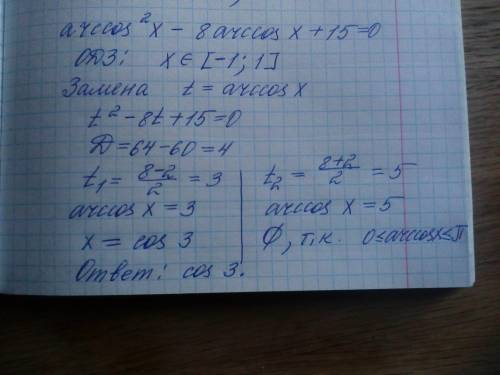 arccos²x − 8arccos x + 15 = 0
ОДЗ: x ∈ [−1; 1]
Замена t = arccos x
t² − 8t + 15 = 0
D = 64 − 60 = 4
t₁ = (8−2)/2 = 3
arccos x = 3
x = cos 3
t₂ = (8+2)/2 = 5
arccos x = 5
∅, т.к. 0≤arccosx≤π
Ответ: cos 3.